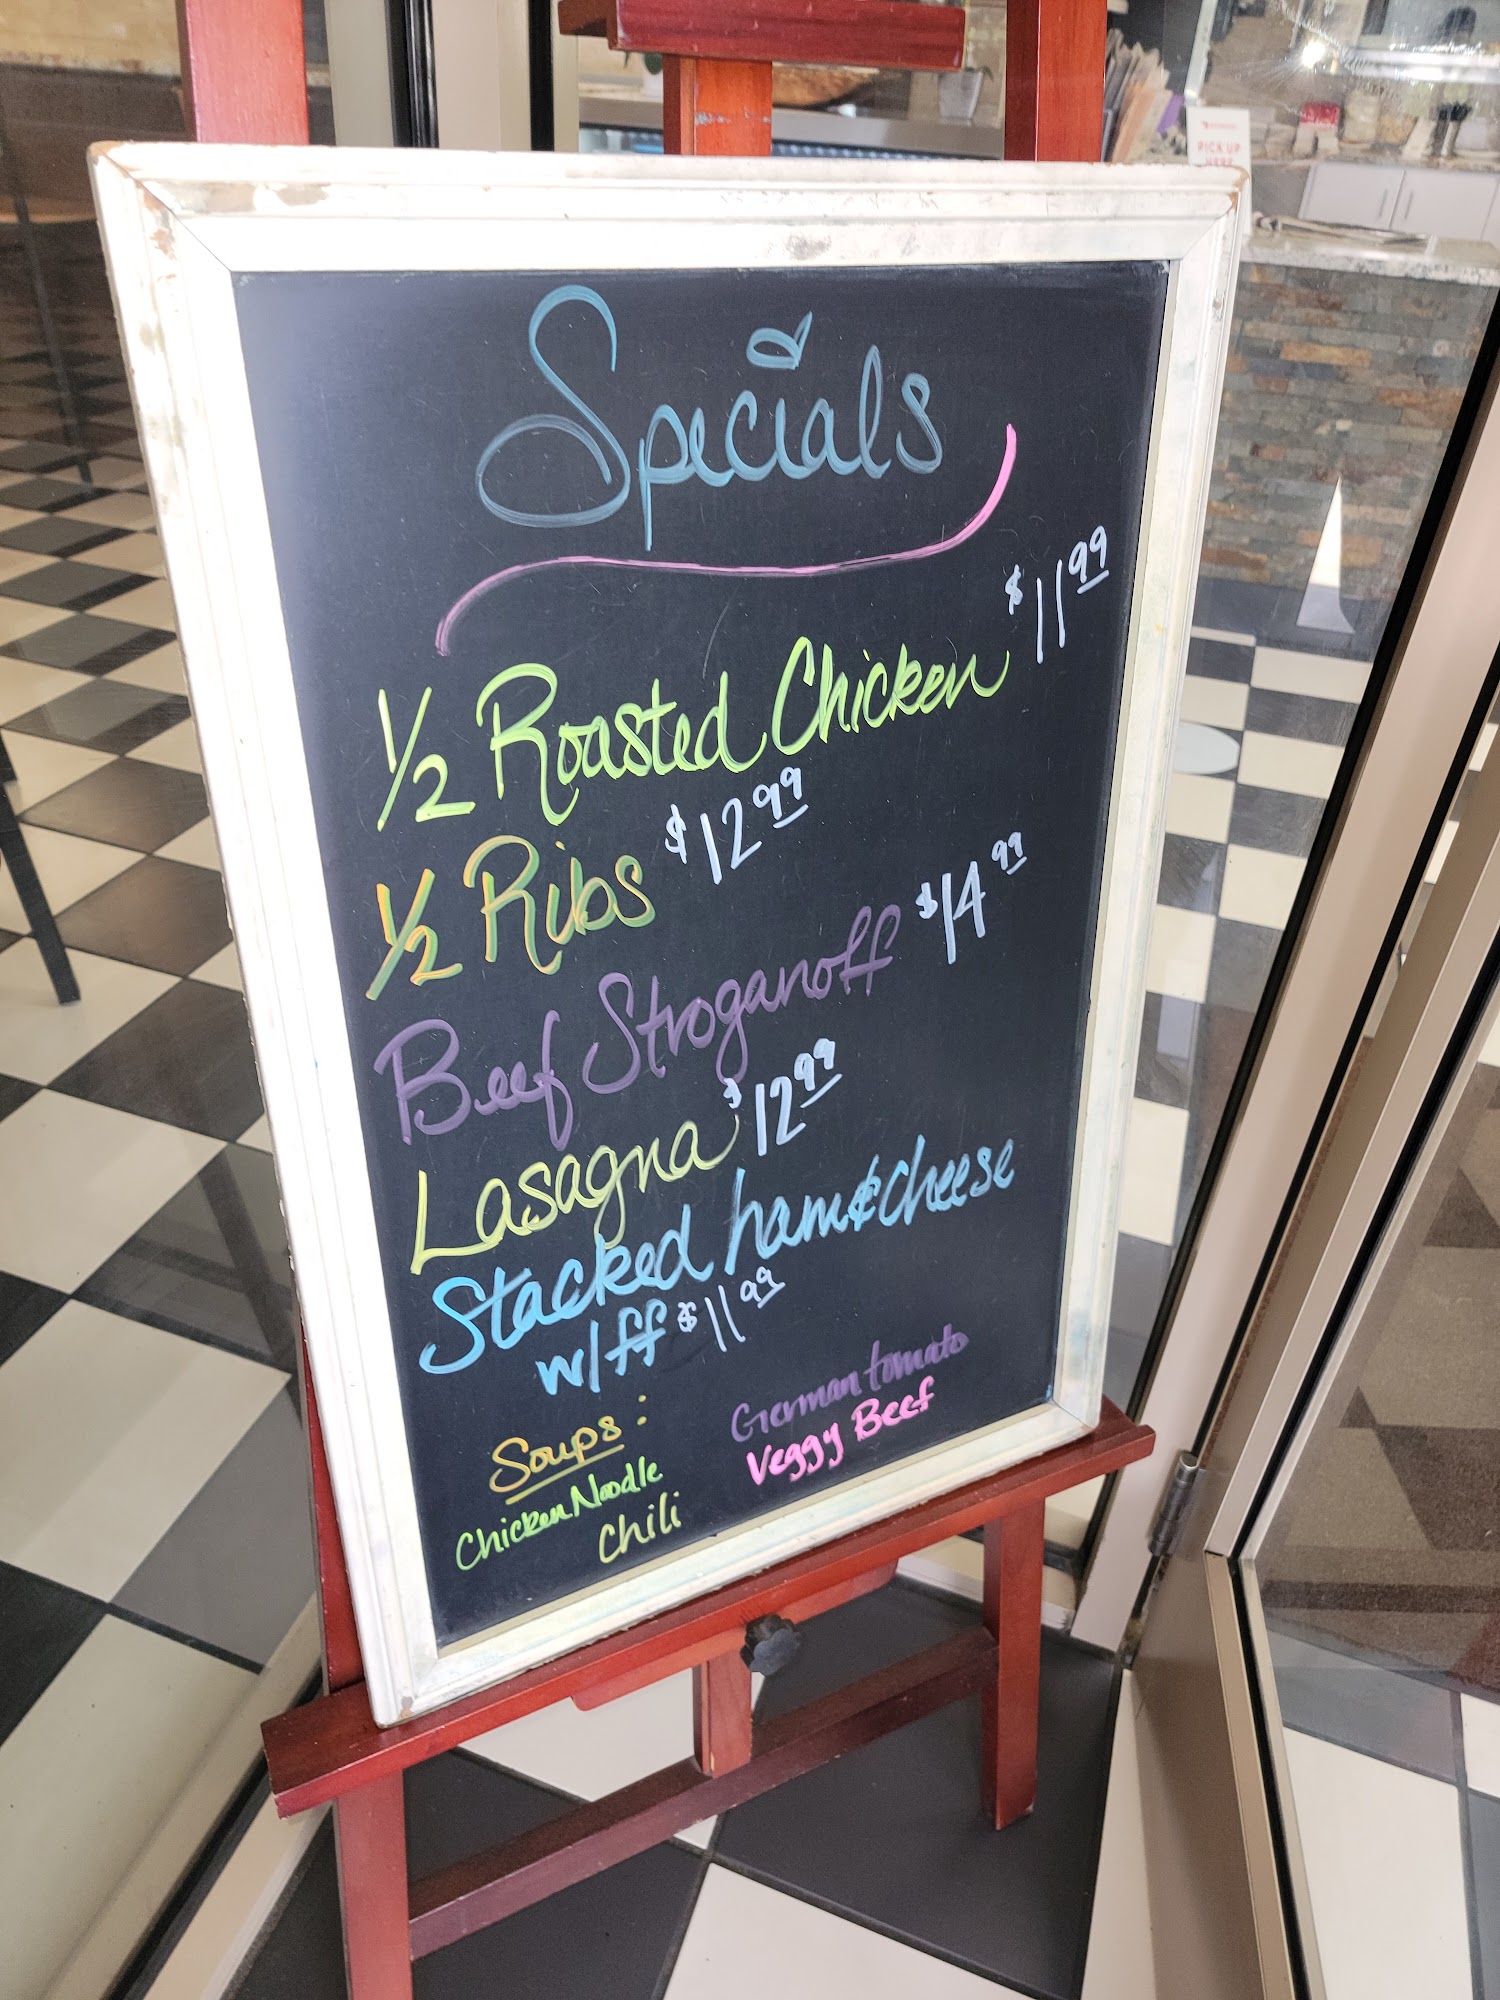 PICK UP
HERE
Specials
1/2 Roasted Chicken $11.99
1/2 Ribs $12.99
Beef Stroganoff $14.99
Lasagna $12.99
Stacked ham & cheese
w/ff $11.99
Soups:
Chicken Noodle
Chili
German tomato
Veggy Beef